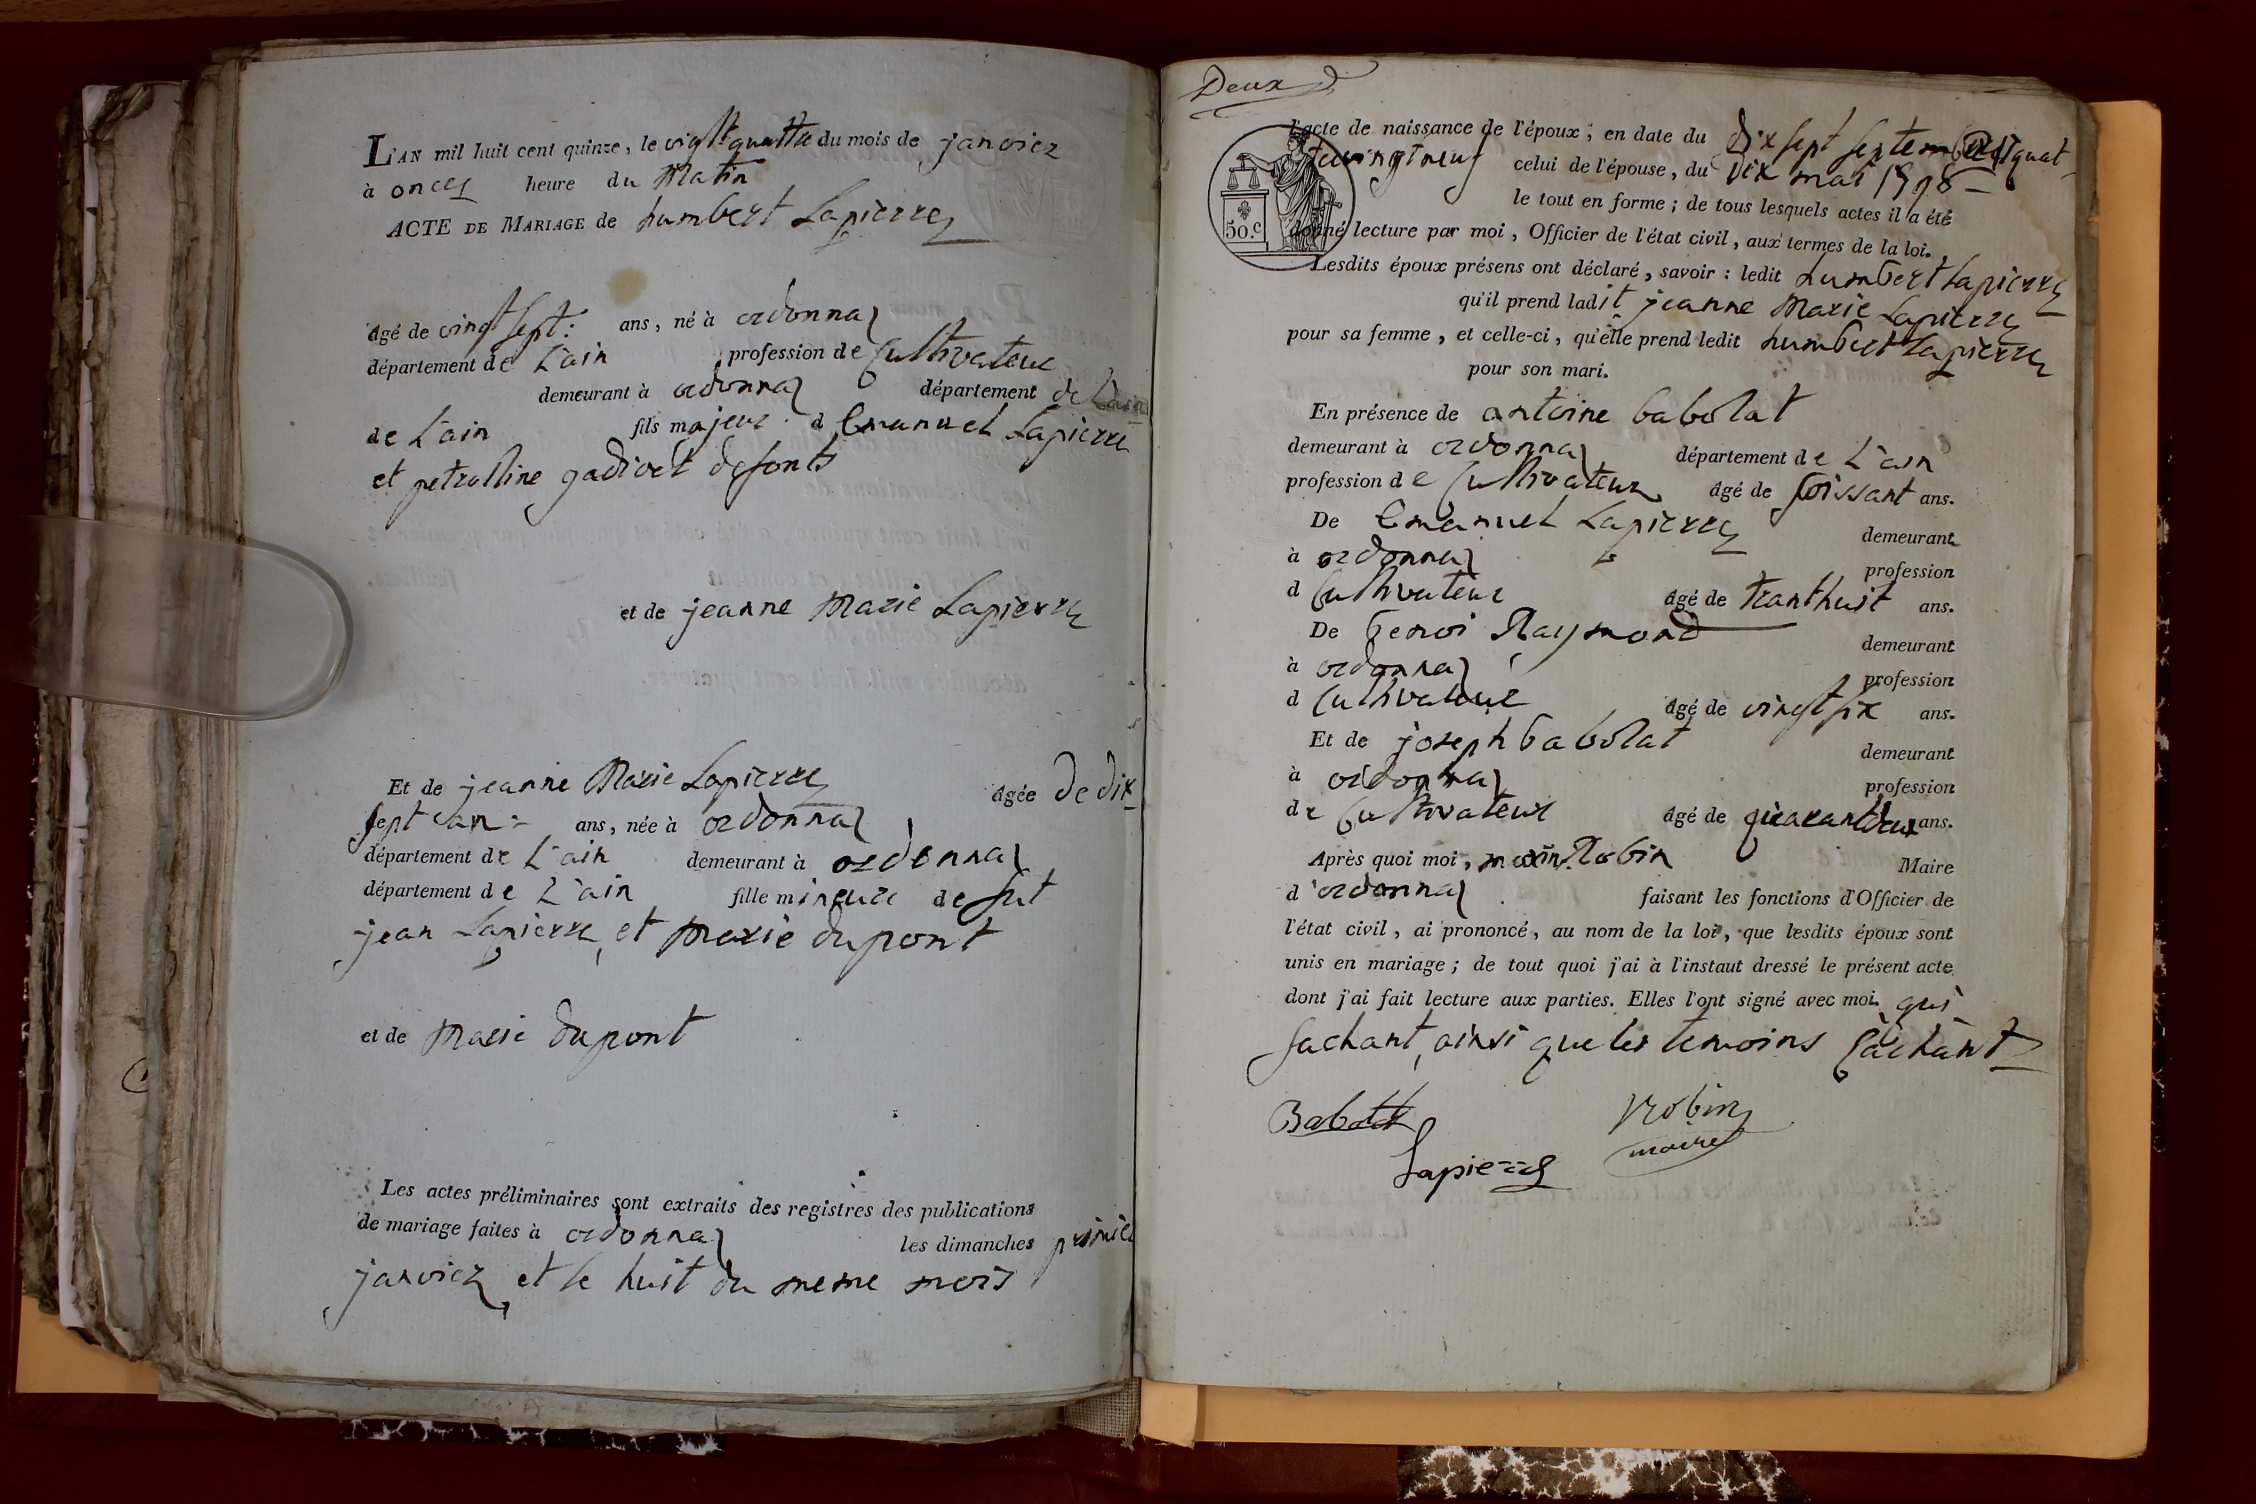 L'AN mil huit cent quinze, le vingt quattre du mois de janviez
à onces heure du Matin
ACTE DE MARIAGE de humbert Lapierre
âgé de vingt sept : ans, né à ordonnaz
département de L'ain profession de Cultivateur
demeurant à ordonnaz département de Lain
de L'ain fils majeur d Emanuel Lapierre
et petrolline gadivet defonts
et de jeanne Marie Lapierre
Et de jeanne Marie Lapierre âgée de dix
sept ans, née à ordonnaz
département de L'ain demeurant à ordonnaz
département de L'ain fille mineure de fut
jean Lapierre et Marie dupont
et de Marie dupont
Les actes préliminaires sont extraits des registres des publications
de mariage faites à ordonnaz les dimanches primier
janviez et le huit du meme mois
Deux
l'acte de naissance de l'époux ; en date du dix sept septembre
vingtneuf celui de l'épouse, du dix mai 1798
le tout en forme ; de tous lesquels actes il a été
50.c donné lecture par moi, Officier de l'état civil, aux termes de la loi.
Lesdits époux présens ont déclaré, savoir : ledit humbert Lapierre
qu'il prend ladit jeanne Marie Lapierre
pour sa femme, et celle-ci, qu'elle prend ledit humbert Lapierre
pour son mari.
En présence de antoine babolat
demeurant à ordonnaz département de L'ain
profession de Cultivateur âgé de soissant ans.
De Emanuel Lapierre demeurant
à ordonnaz profession
d Cultivateur âgé de tranthuit ans.
De benoi Raymond demeurant
à ordonnaz profession
d Cultivateur âgé de vingt six ans.
Et de joseph babolat demeurant
à ordonnaz profession
de Cultivateur âgé de quarantdeux ans.
Après quoi moi, Robin Maire
d'ordonnaz faisant les fonctions d'Officier de
l'état civil, ai prononcé, au nom de la loi, que lesdits époux sont
unis en mariage ; de tout quoi j'ai à l'instaut dressé le présent acte
dont j'ai fait lecture aux parties. Elles l'ont signé avec moi qui
sachant, ainsi que les temoins sachant
Babolat Robin
Lapierre maire